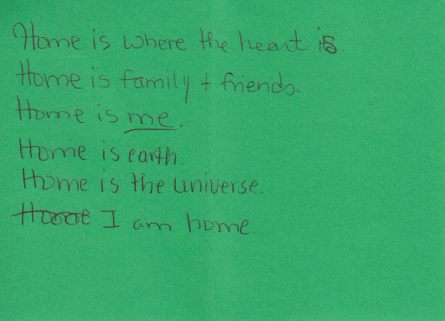 Home is where the heart is.
Home is family + friends.
Home is me.
Home is earth.
Home is the universe.
Home I am home.